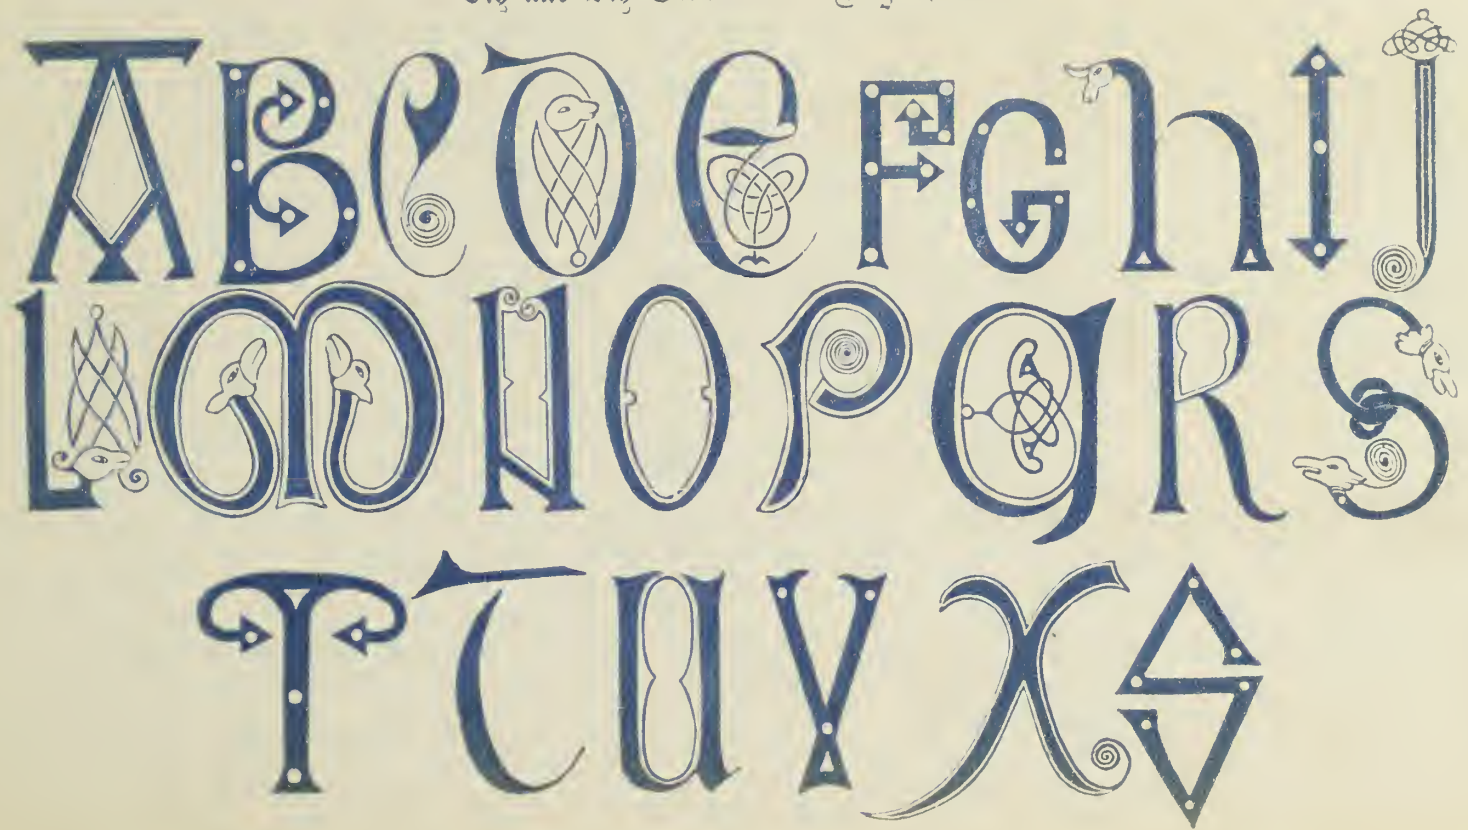 A B C D E F G h I J
L M N O P q R S
T T U V X S